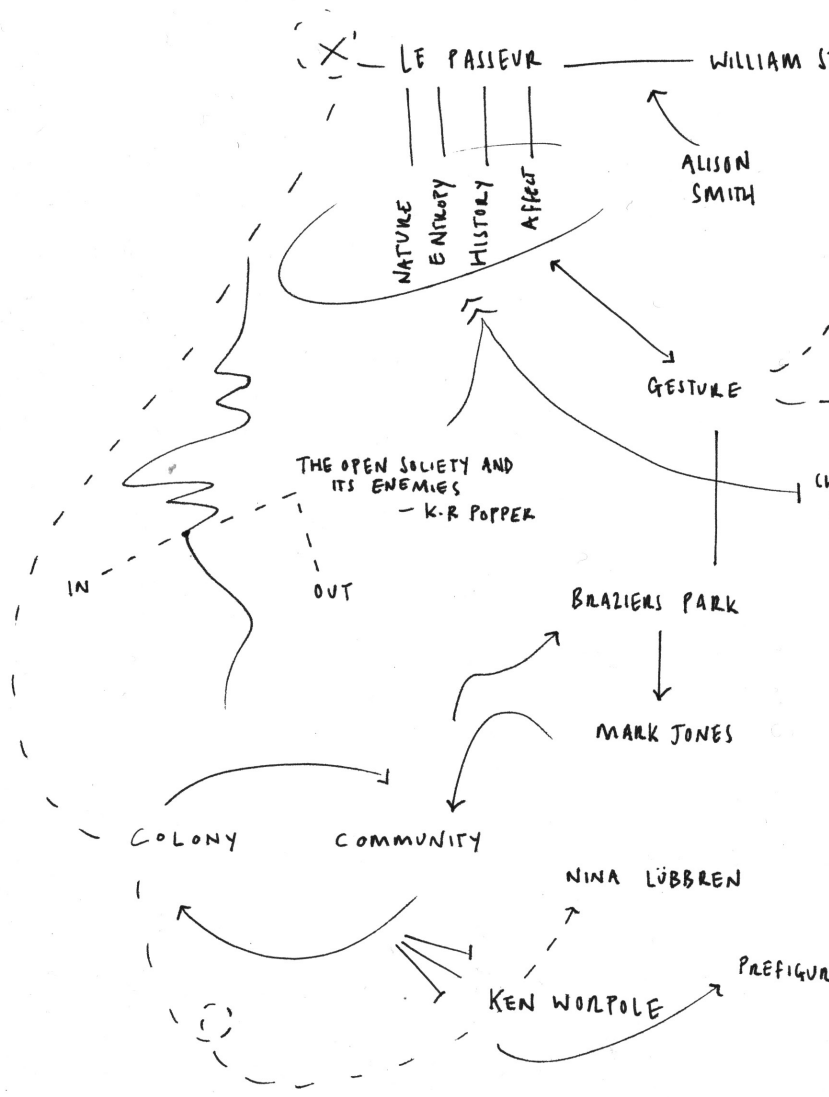 X' LE PASSEUR WILLIAM S
ALISON
SMITH
NATURE
ENTROPY
HISTORY
AFFECT
GESTURE
THE OPEN SOCIETY AND
ITS ENEMIES
– K.R POPPER
IN
OUT
BRAZIERS PARK
MARK JONES
COLONY COMMUNITY
NINA LÜBBREN
PREFIGUR
KEN WORPOLE